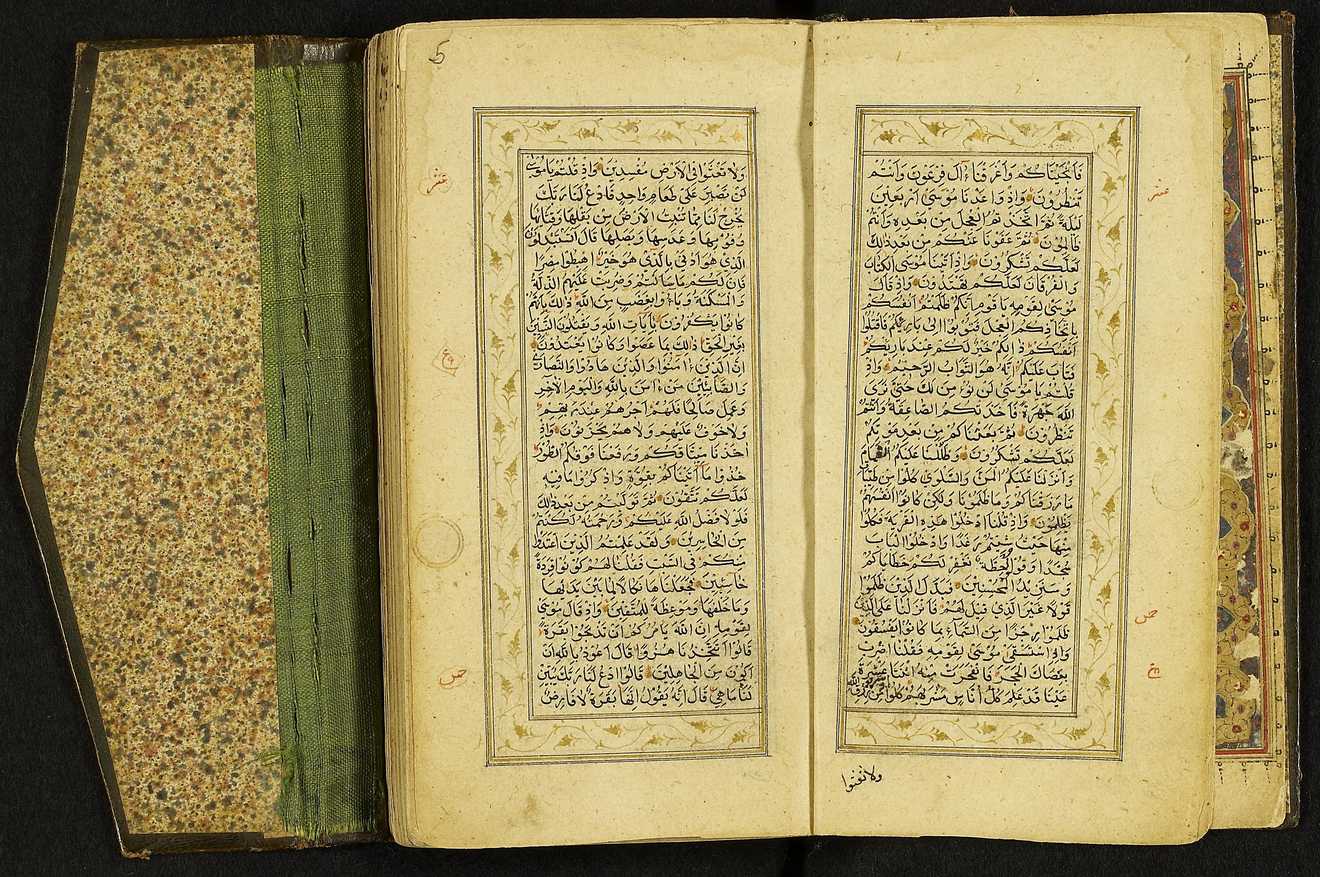 فَأَنْجَيْنَاكُمْ وَأَغْرَقْنَا آلَ فِرْعَوْنَ وَأَنْتُمْ
تَنْظُرُونَ وَإِذْ وَاعَدْنَا مُوسَى أَرْبَعِينَ
لَيْلَةً ثُمَّ اتَّخَذْتُمُ الْعِجْلَ مِنْ بَعْدِهِ وَأَنْتُمْ
ظَالِمُونَ ثُمَّ عَفَوْنَا عَنْكُمْ مِنْ بَعْدِ ذَلِكَ
لَعَلَّكُمْ تَشْكُرُونَ وَإِذْ آتَيْنَا مُوسَى الْكِتَابَ
وَالْفُرْقَانَ لَعَلَّكُمْ تَهْتَدُونَ وَإِذْ قَالَ
مُوسَى لِقَوْمِهِ يَا قَوْمِ إِنَّكُمْ ظَلَمْتُمْ أَنْفُسَكُمْ
بِاتِّخَاذِكُمُ الْعِجْلَ فَتُوبُوا إِلَى بَارِئِكُمْ فَاقْتُلُوا
أَنْفُسَكُمْ ذَلِكُمْ خَيْرٌ لَكُمْ عِنْدَ بَارِئِكُمْ
فَتَابَ عَلَيْكُمْ إِنَّهُ هُوَ التَّوَّابُ الرَّحِيمُ وَإِذْ
قُلْتُمْ يَا مُوسَى لَنْ نُؤْمِنَ لَكَ حَتَّى نَرَى
اللَّهَ جَهْرَةً فَأَخَذَتْكُمُ الصَّاعِقَةُ وَأَنْتُمْ
تَنْظُرُونَ ثُمَّ بَعَثْنَاكُمْ مِنْ بَعْدِ مَوْتِكُمْ
لَعَلَّكُمْ تَشْكُرُونَ وَظَلَّلْنَا عَلَيْكُمُ الْغَمَامَ
وَأَنْزَلْنَا عَلَيْكُمُ الْمَنَّ وَالسَّلْوَى كُلُوا مِنْ طَيِّبَاتِ
مَا رَزَقْنَاكُمْ وَمَا ظَلَمُونَا وَلَكِنْ كَانُوا أَنْفُسَهُمْ
يَظْلِمُونَ وَإِذْ قُلْنَا ادْخُلُوا هَذِهِ الْقَرْيَةَ فَكُلُوا
مِنْهَا حَيْثُ شِئْتُمْ رَغَدًا وَادْخُلُوا الْبَابَ
سُجَّدًا وَقُولُوا حِطَّةٌ نَغْفِرْ لَكُمْ خَطَايَاكُمْ
وَسَنَزِيدُ الْمُحْسِنِينَ فَبَدَّلَ الَّذِينَ ظَلَمُوا
قَوْلًا غَيْرَ الَّذِي قِيلَ لَهُمْ فَأَنْزَلْنَا عَلَى الَّذِينَ
ظَلَمُوا رِجْزًا مِنَ السَّمَاءِ بِمَا كَانُوا يَفْسُقُونَ
وَإِذِ اسْتَسْقَى مُوسَى لِقَوْمِهِ فَقُلْنَا اضْرِبْ
بِعَصَاكَ الْحَجَرَ فَانْفَجَرَتْ مِنْهُ اثْنَتَا عَشْرَةَ
عَيْنًا قَدْ عَلِمَ كُلُّ أُنَاسٍ مَشْرَبَهُمْ كُلُوا وَاشْرَبُوا مِنْ رِزْقِ اللَّهِ
ولا تعثوا
وَلَا تَعْثَوْا فِي الْأَرْضِ مُفْسِدِينَ وَإِذْ قُلْتُمْ يَا مُوسَى
لَنْ نَصْبِرَ عَلَى طَعَامٍ وَاحِدٍ فَادْعُ لَنَا رَبَّكَ
يُخْرِجْ لَنَا مِمَّا تُنْبِتُ الْأَرْضُ مِنْ بَقْلِهَا وَقِثَّائِهَا
وَفُومِهَا وَعَدَسِهَا وَبَصَلِهَا قَالَ أَتَسْتَبْدِلُونَ
الَّذِي هُوَ أَدْنَى بِالَّذِي هُوَ خَيْرٌ اهْبِطُوا مِصْرًا
فَإِنَّ لَكُمْ مَا سَأَلْتُمْ وَضُرِبَتْ عَلَيْهِمُ الذِّلَّةُ
وَالْمَسْكَنَةُ وَبَاءُوا بِغَضَبٍ مِنَ اللَّهِ ذَلِكَ بِأَنَّهُمْ
كَانُوا يَكْفُرُونَ بِآيَاتِ اللَّهِ وَيَقْتُلُونَ النَّبِيِّينَ
بِغَيْرِ الْحَقِّ ذَلِكَ بِمَا عَصَوْا وَكَانُوا يَعْتَدُونَ
إِنَّ الَّذِينَ آمَنُوا وَالَّذِينَ هَادُوا وَالنَّصَارَى
وَالصَّابِئِينَ مَنْ آمَنَ بِاللَّهِ وَالْيَوْمِ الْآخِرِ
وَعَمِلَ صَالِحًا فَلَهُمْ أَجْرُهُمْ عِنْدَ رَبِّهِمْ
وَلَا خَوْفٌ عَلَيْهِمْ وَلَا هُمْ يَحْزَنُونَ وَإِذْ
أَخَذْنَا مِيثَاقَكُمْ وَرَفَعْنَا فَوْقَكُمُ الطُّورَ
خُذُوا مَا آتَيْنَاكُمْ بِقُوَّةٍ وَاذْكُرُوا مَا فِيهِ
لَعَلَّكُمْ تَتَّقُونَ ثُمَّ تَوَلَّيْتُمْ مِنْ بَعْدِ ذَلِكَ
فَلَوْلَا فَضْلُ اللَّهِ عَلَيْكُمْ وَرَحْمَتُهُ لَكُنْتُمْ
مِنَ الْخَاسِرِينَ وَلَقَدْ عَلِمْتُمُ الَّذِينَ اعْتَدَوْا
مِنْكُمْ فِي السَّبْتِ فَقُلْنَا لَهُمْ كُونُوا قِرَدَةً
خَاسِئِينَ فَجَعَلْنَاهَا نَكَالًا لِمَا بَيْنَ يَدَيْهَا
وَمَا خَلْفَهَا وَمَوْعِظَةً لِلْمُتَّقِينَ وَإِذْ قَالَ مُوسَى
لِقَوْمِهِ إِنَّ اللَّهَ يَأْمُرُكُمْ أَنْ تَذْبَحُوا بَقَرَةً
قَالُوا أَتَتَّخِذُنَا هُزُوًا قَالَ أَعُوذُ بِاللَّهِ أَنْ
أَكُونَ مِنَ الْجَاهِلِينَ قَالُوا ادْعُ لَنَا رَبَّكَ يُبَيِّنْ
لَنَا مَا هِيَ قَالَ إِنَّهُ يَقُولُ إِنَّهَا بَقَرَةٌ لَا فَارِضٌ
5